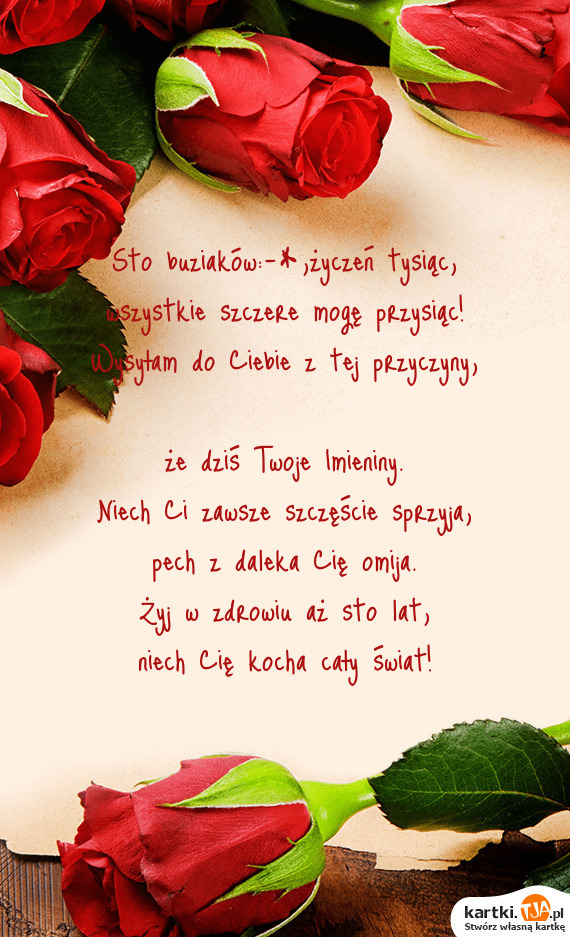 Sto buziaków:-* ,życzeń tysiąc,
wszystkie szczere mogę przysiąc!
Wysyłam do Ciebie z tej przyczyny,
że dziś Twoje Imieniny.
Niech Ci zawsze szczęście sprzyja,
pech z daleka Cię omija.
Żyj w zdrowiu aż sto lat,
niech Cię kocha cały świat!
kartki.TJA.pl
Stwórz własną kartkę